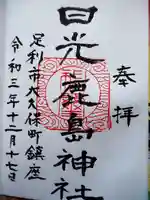 奉拝
日光鹿島神社
足利市大久保町鎮座
令和三年十二月十七日